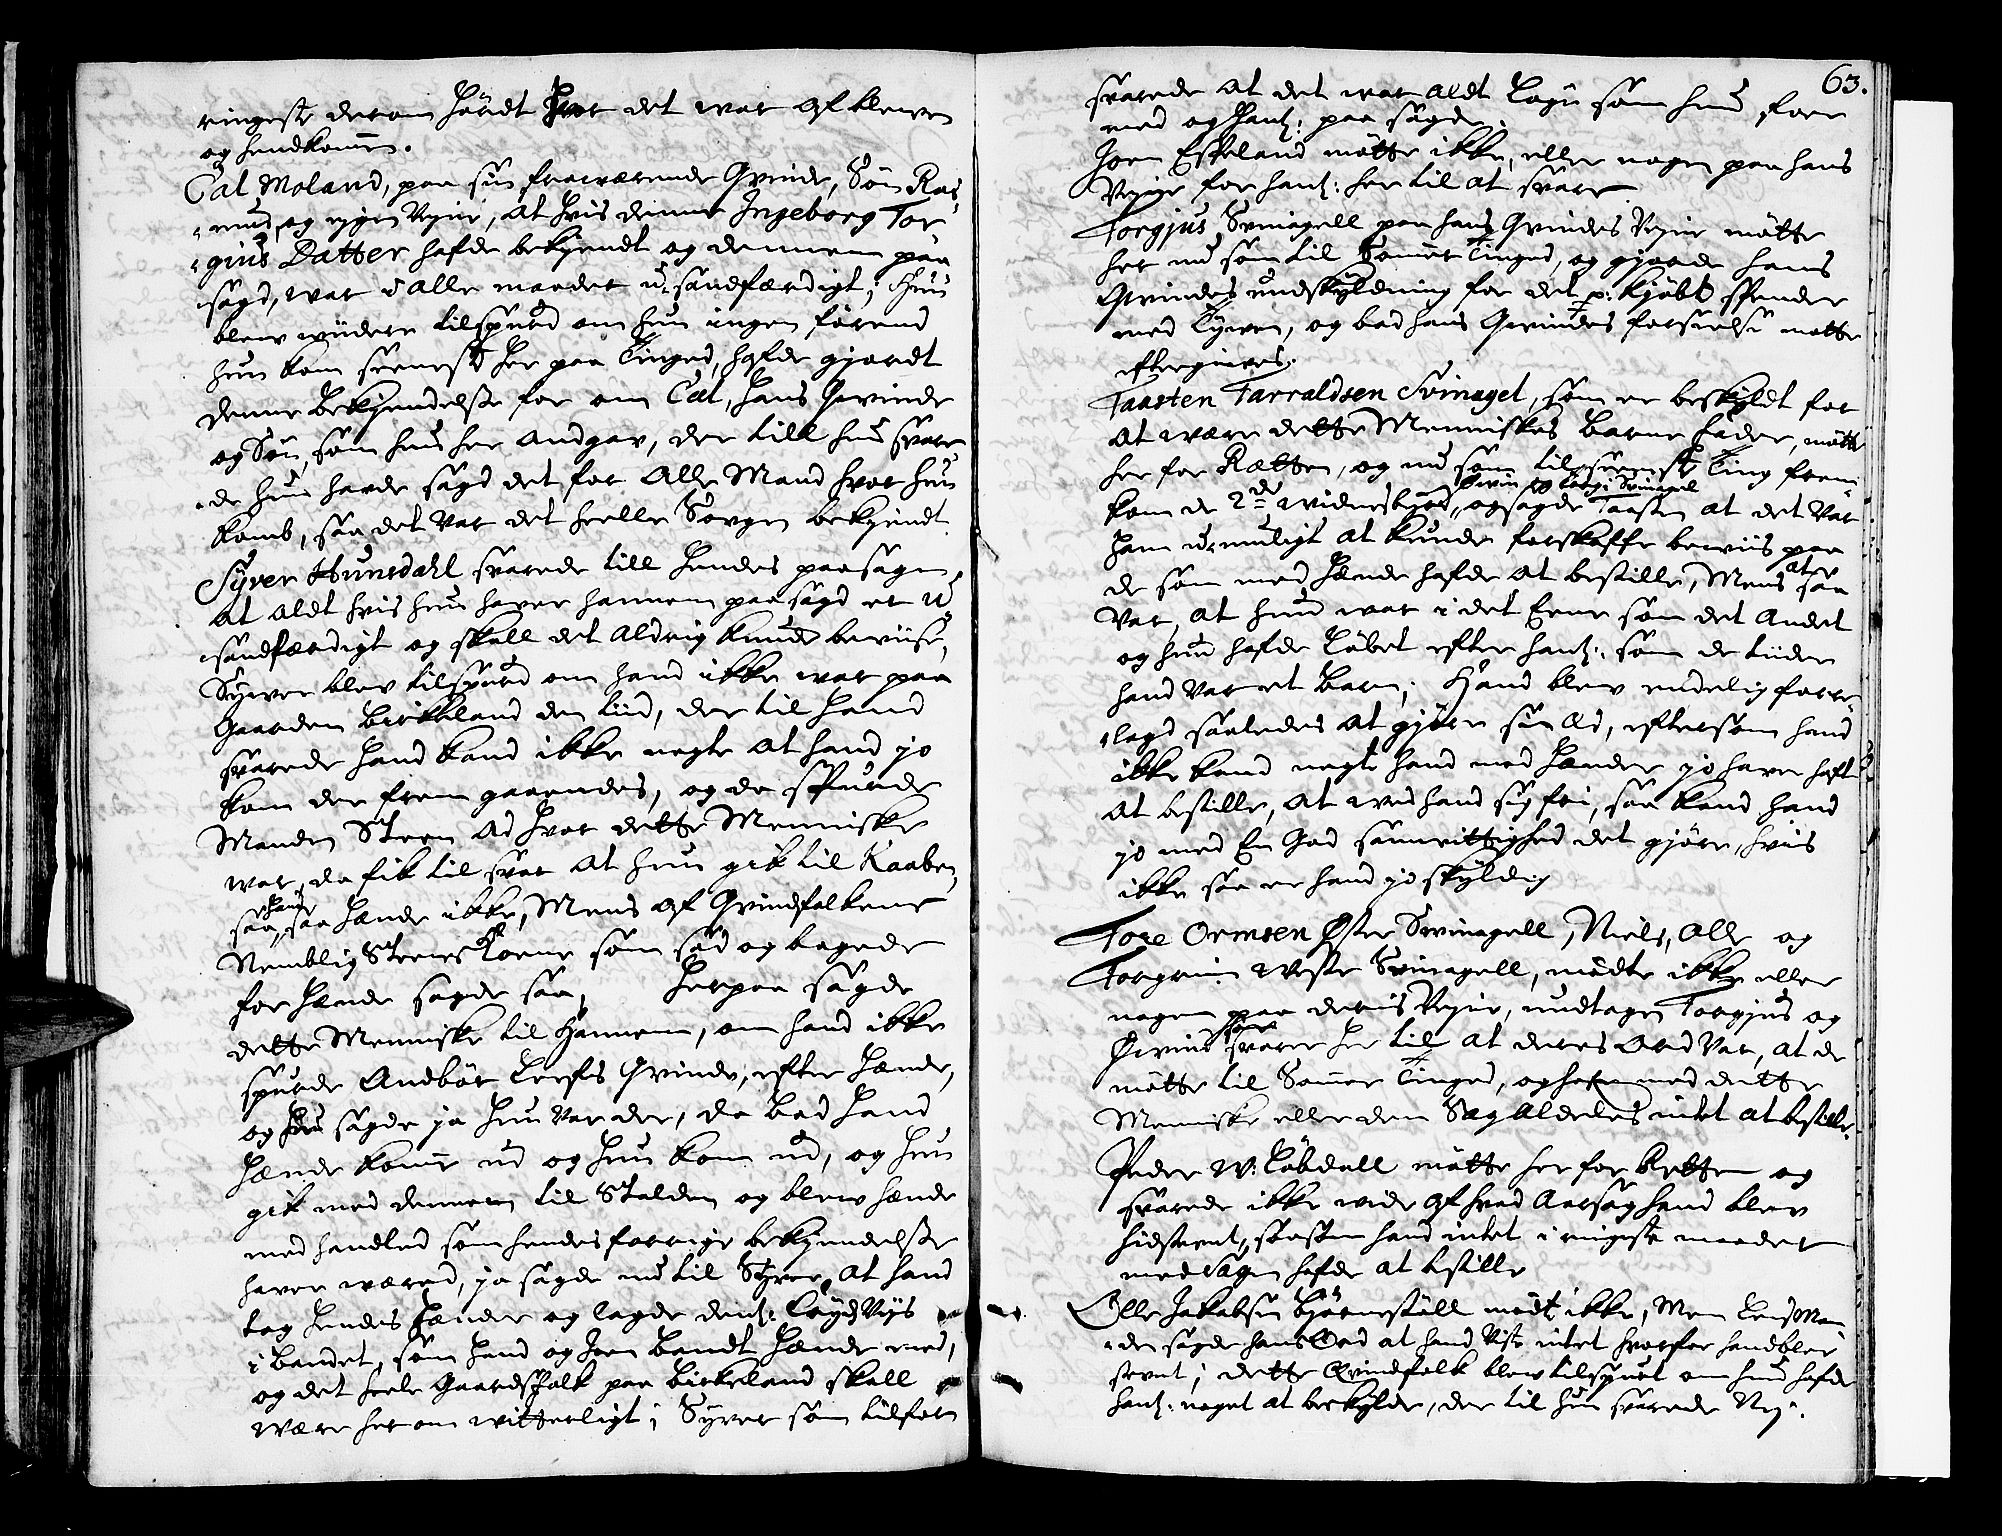 ringeste derom hördt hvor det war af bleven
og hendkommen.
Tal Moland, paa sin fraværende Qvinde, Sön Ras-
mus, og egen Vegne, at hvis denne Ingeborg Tor-
gius Datter hafde bekiendt og dennem paa
sagd, war i alle maader u-sandfærdigt; hun
blev widere tilspurd om hun ingen förend
hun kom seenest her paa Tinged, hafde gjordt
denne bekjendelse for om Tal, hans Qvinde
og Sön, som hun her andgav, der till hun svare
de hun havde sagd det for alle Mand hvor hun
komb, saa det var det heele Sovgen bekjendt
Syver Hunsdahl svarede till hendes paasagn
at aldt hvis hun haver hannem paasagd er u-
sandfærdigt og skall det aldrig kunde bewiise,
Sywer blev tilspurd om hand ikke war paa
Gaarden Birkeland den tiid, der til hand
svarede hand kand ikke negte at hand jo
kom der frem gaaendes, og da spurde
Manden Steen ad hvor dette Menniske
war, da fik til svar at hun gik til Raaben,
saa hand saa hende ikke, Mens af Qvindfolkene
Nemblig Steens Kone som sad og bagede
for hende sagde saa, Herpaa sagde
dette Menniske til Hannem, om hand ikke
spurde Andbör Leefs Qvinde, efter hende,
og hun sagde ja hun var der, da bad hand
hende komme ud og hun kom ud, og hun
gik med dennem til Stalden og blev hende
med handled som hendes forrige bekjendelse
haver wæred, ja sagde nu til Syver, at hand
tog hendes hænder og lagde dend Löyse Viis
i bandet, som hand og Joen bandt hende med,
og det heele Gaards folk paa Birkeland skall
være her om witterligt; Syver som tilforn
63.
svarede at det war aldt Løgn som hun foer
med og hans: paa sagde.
Joen Eskeland mötte ikke, eller nogen paa hans
Vegne for hans: her til at svare
Torgjus Svinagell paa hans Qvindes Vegne mötte
her nu som til Sommer Tinged, og gjorde hans
Qvindes undskyldning for det p: kjöbt spender
med Tyven, og bad hans Qvindes forseelse matte
eftergives.
Taasten Tarraldsen Svinaget, som er beskyldt for
at være dette Menniskes Barne fader, mötte
her for Rætten, og nu som til seeneste Ting frem
Öwin og Torgi Svinagel
kom de 2de widnesbyrd, og sagde Taasten at det var
ham u-muligt at kunde forskaffe beviis paa
de som med hende hafde at bestille, Mens at saa
var, at hun war i det Eene som det Andet
og hun hafde löbet efter hans: som de tiider
hand var et barn; Hand blev endelig fore-
lagd saaledes at gjöre sin Æd, eftersom hand
ikke kand negte hand med hender jo haver haft
at bestille, at wed hand sig fri, saa kand hand
jo med En God samvittighed det gjöre, hviis
ikke saa er hand jo skyldig
Tore Ormsen Öster Svinagell, Niels, Olle og
Torgrim Wester Svinagell, mödte ikke eller
nogen paa deris Vegne, undtagen Torgjus og
Öwind som svarer her til at deres Ord var, at de
mötte til Sommer Tinged, og hafwer med dette
Menniske eller den Sag Aldeles intet at bestille.
Peder W: Löbdall mötte her for Retten og
svarede ikke wide af hvad Aarsag hand blev
hidstevnt, saasom hand intet i ringeste maader
med Sagen hafde at bestille
Olle Jakobsen Björnestöll mödt ikke, Men Lensman-
den sagde hans Ord at hand viste intet hvorfor hand blev
stevnt; dette Qvindfolk blev tilspurt om hun hafde
hans: noget at beskylde, der til hun svarede Nej.